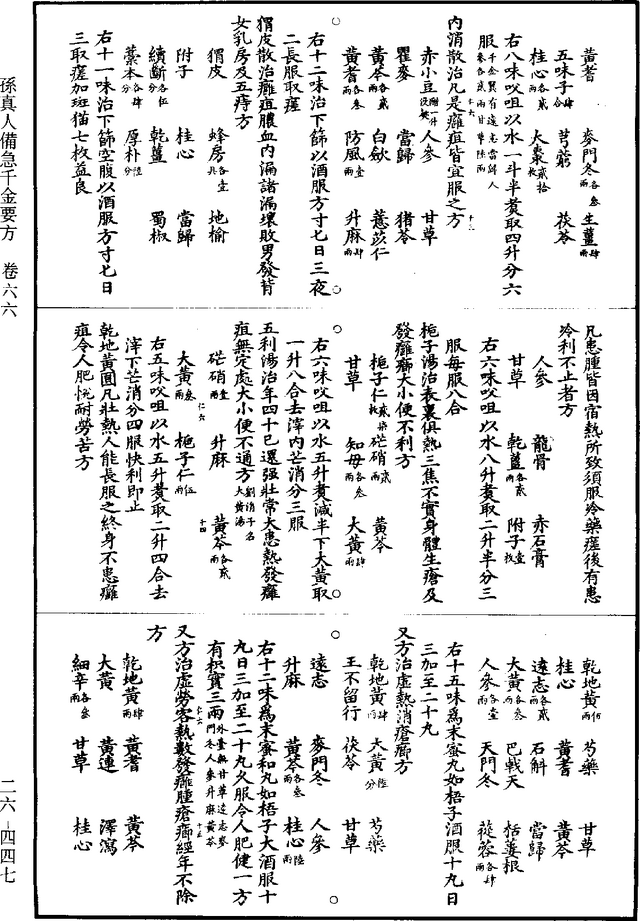 黃耆　麥門冬各叁兩　生薑肆兩
五味子肆合　芎藭　茯苓
桂心各貳兩　大棗貳拾枚
右八味㕮咀以水一斗半煮取四升分六
服
內消散治凡是癰疽皆宜服之方
赤小豆　人參　甘草
瞿麥　當歸　猪苓
黃芩各貳兩　白蘞　薏苡仁
黃耆各叁兩　防風壹兩　升麻肆兩
右十二味治下篩以酒服方寸匕日三夜
二長服取瘥
猬皮散治癰疽膿血內漏諸漏壞敗男發背
女乳房及五痔方
猬皮　蜂房各壹具　地榆
附子　桂心　當歸
續斷各伍分　乾薑　蜀椒
藁本各肆分　厚朴陸分
右十一味治下篩空腹以酒服方寸匕日
三取瘥加斑猫七枚益良
凡患腫皆因宿熱所致須服冷藥瘥後有患
冷利不止者方
人參　龍骨　赤石膏
甘草　乾薑各貳兩　附子壹枚
右六味㕮咀以水八升煮取二升半分三
服每服八合
梔子湯治表裏俱熱三焦不實身體生瘡及
發癰癤大小便不利方
梔子仁貳柒枚　芒硝貳兩　黃芩
甘草　知母各叁兩　大黃肆兩
右六味㕮咀以水五升煮減半下大黃取
一升八合去滓內芒消分三服
五利湯治年四十已還强壯常大患熱發癰
疽無定處大小便不通方劉涓子名大黃湯
芒硝壹兩　升麻　黃芩各貳兩
大黃叁兩　梔子仁伍兩
右五味㕮咀以水五升煮取二升四合去
滓下芒消分四服快利即止
乾地黃圓凡壯熱人能長服之終身不患癰
疽令人肥悅耐勞苦方
乾地黃伍兩　芍藥　甘草
桂心　黃耆　黃芩
遠志各貳兩　石斛　當歸
大黃各叁兩　巴戟天　栝蔞根
人參各壹兩　天門冬　蓯蓉各肆兩
右十五味為末蜜丸如梧子酒服十丸日
三加至二十九
又方治虛熱消瘡癤方
乾地黃肆兩　大黃陸分　芍藥
王不留行　茯苓　甘草
遠志　麥門冬　人參
升麻　黃芩各叁兩　桂心陸兩
右十二味為末蜜和丸如梧子大酒服十
九日三加至二十九久服令人肥健一方
有枳實三兩
又方治虛勞客熱數發癰腫瘡癤經年不除
方
乾地黃肆兩　黃耆　黃芩
大黃　黃連　澤瀉
細辛各叁兩　甘草　桂心
孫真人備急千金要方　卷六六
二六-四四七